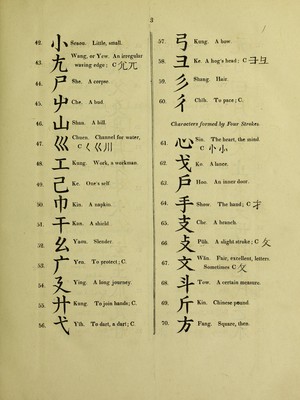 3
42. 小 Seaou. Little, small.
43. 尢 Wang, or Yew. An irregular
waving edge; C 尣兀
44. 尸 She. A corpse
45. 屮 Che. A bud.
46. 山 Shan. A hill.
47. 巛 Chuen. Channel for water,
C 〈 巜川
48. 工 Kung. Work, a workman.
49. 己 Ke. One's self
50. 巾 Kin. A napkin.
51. 干 Kan. A shield
52. 幺 Yaou. Slender.
53. 广 Yen. To protect; C.
54. 廴 Ying. A long journey.
55. 廾 Kung. To join hands; C.
56. 弋 Yih. To dart, a dart; C.
57. 弓 Kung. A bow.
58. 彐 Ke. A hog's head; C 彑彐
59. 彡 Shang. Hair.
60. 彳 Chih. To pace; C.
Characters formed by Four Strokes.
61. 心 Sin. The heart, the mind.
C 忄㣺
62. 戈 Ko. A lance.
63. 戶 Hoo. An inner door.
64. 手 Show. The hand; C 才
65. 支 Che. A branch.
66. 攴 Puh. A slight stroke; C 攵
67. 文 Wăn. Fair, excellent, letters.
Sometimes C 攵
68. 斗 Tow. A certain measure.
69. 斤 Kin. Chinese pound.
70. 方 Fang. Square, then.